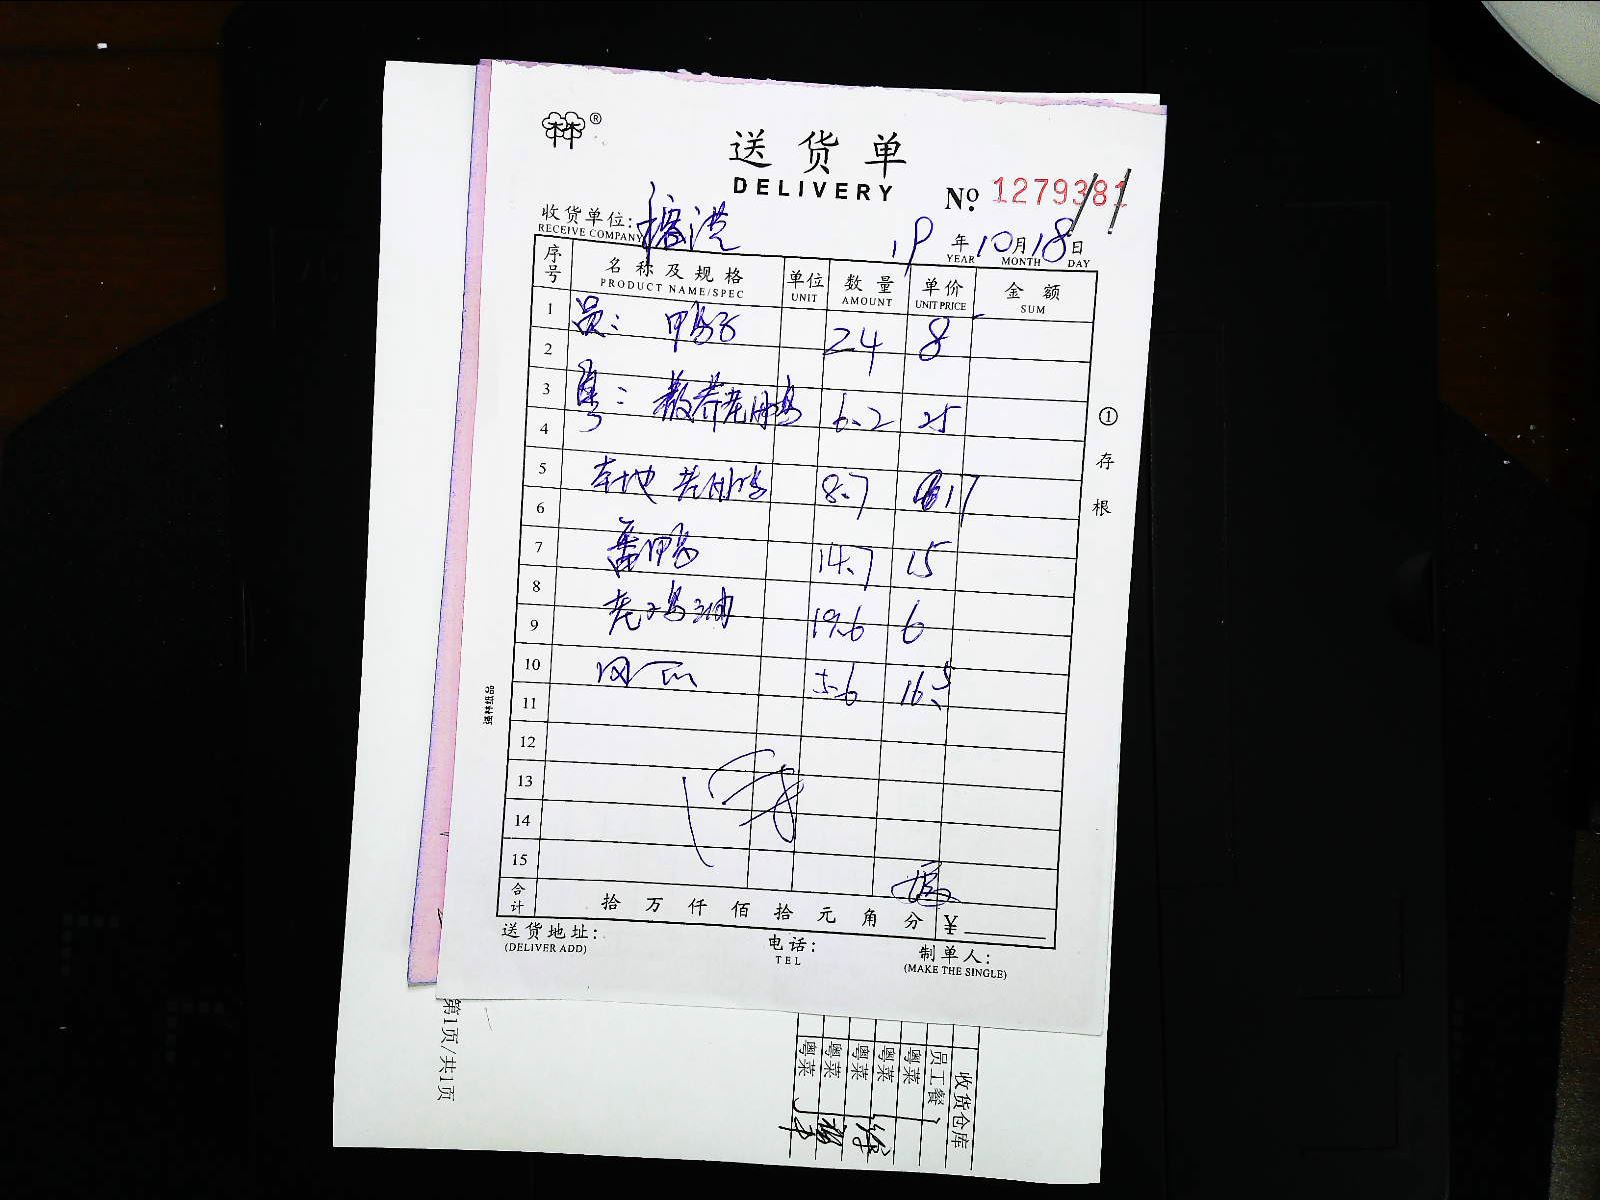 ®
送货单
DELIVERY
No. 1279381
收货单位:
RECEIVE COMPANY
19 年 10 月 18 日
YEAR MONTH DAY
序号 名称及规格 单位 数量 单价 金额
PRODUCT NAME/SPEC UNIT AMOUNT UNIT PRICE SUM
1 员: 鸭 24 8
2
3 : 散养老 6.2 25
4
5 本地老 8.7 17
6
7 番鸭 14.7 15
8
9 老鸡 19.6 6
10 5.6 16.5
11
12
13
14
15
合计 拾 万 仟 佰 拾 元 角 分 ¥
送货地址: 电话: 制单人:
(DELIVER ADD) TEL (MAKE THE SINGLE)
①存根
强林纸品
第1页/共1页
收货仓库
员工餐
粤菜
粤菜
粤菜
粤菜
粤菜